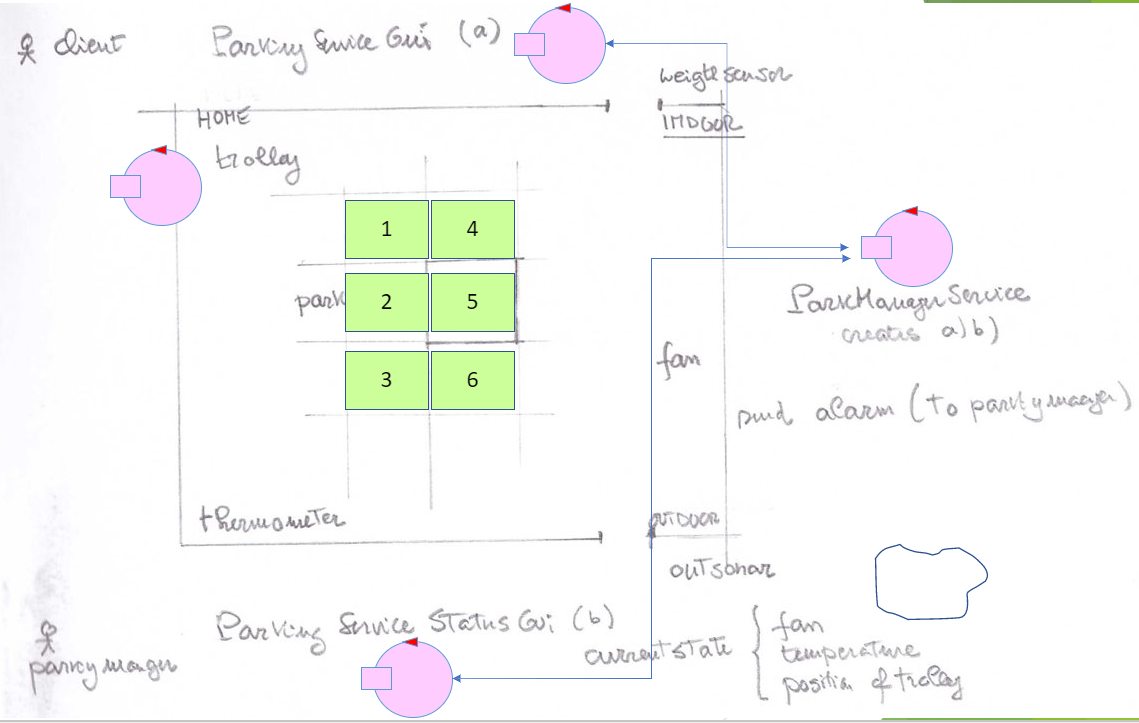 client
Parking Service Gui (a)
weigtsensor
HOME
INDOOR
trolley
1 4
park 2 5
3 6
ParkManagerService
creates a)b)
fan
send alarm (to parking manager)
thermometer
OUTDOOR
outsonar
Parking Service Status Gui (b)
parking manager
current state
fan
temperature
position of trolley